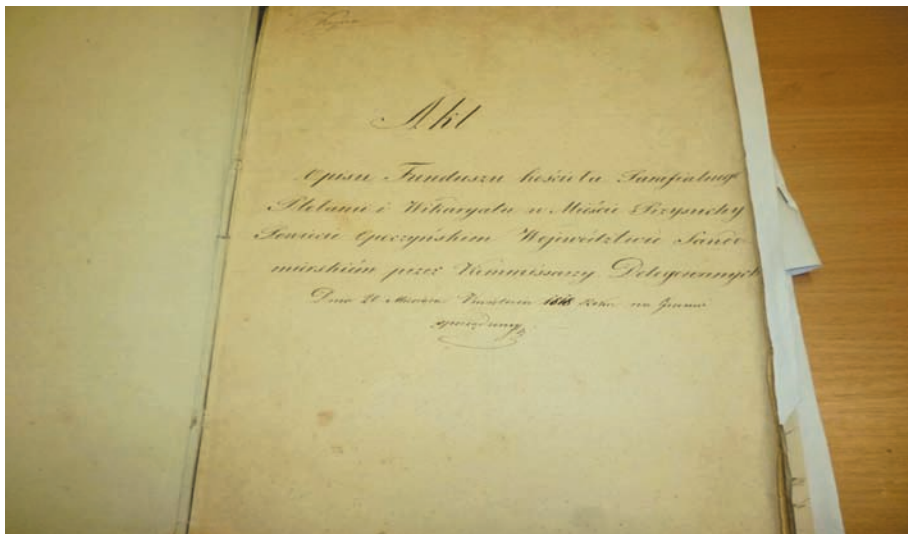 Kopia
Akt
Opisu Funduszu kościoła Parafialnego
Plebanii i Wikaryatu w Mieście Przysuchy
Powiecie Opoczyńskim Wojewódzlwie Sando-
mirskiém przez Kommissarzy Delegowannych
Dnia 20 Miesiąca Kwietnia 1818 Roku na Gruncie
sporządzony